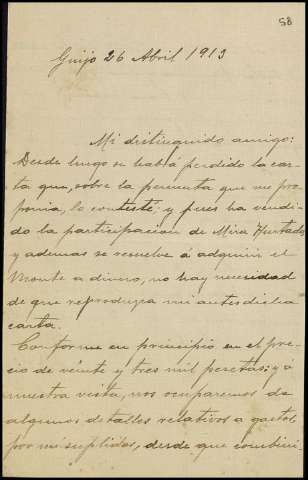 58
Guijo 26 Abril 1913
Mi distinguido amigo:
Desde luego se habrá perdido la car-
ta que, sobre la permuta que me pro-
ponia, le contesté; y pues ha vendi-
do la participacion de Mira Hurtado
y ademas se resuelve á adquirir el
Monte a dinero, no hay necesidad
de que reproduzca mi antes dicha
carta.
Conforme en principio en el pre-
cio de veinte y tres mil pesetas; y á
nuestra vista, nos ocuparemos de
algunos detalles relativos a gastos,
por mi suplidos, desde que combini-